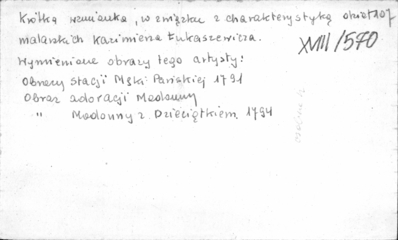 Krótka wzmianka, w związku z charakterystyką obiektów
malarskich Kazimierza Łukaszewicza.
XVIII/570
Wymienione obrazy tego artysty:
Obrazy stacji Męki Pańskiej 1791
Obraz adoracji Madonny
" Madonny z Dzieciątkiem 1794